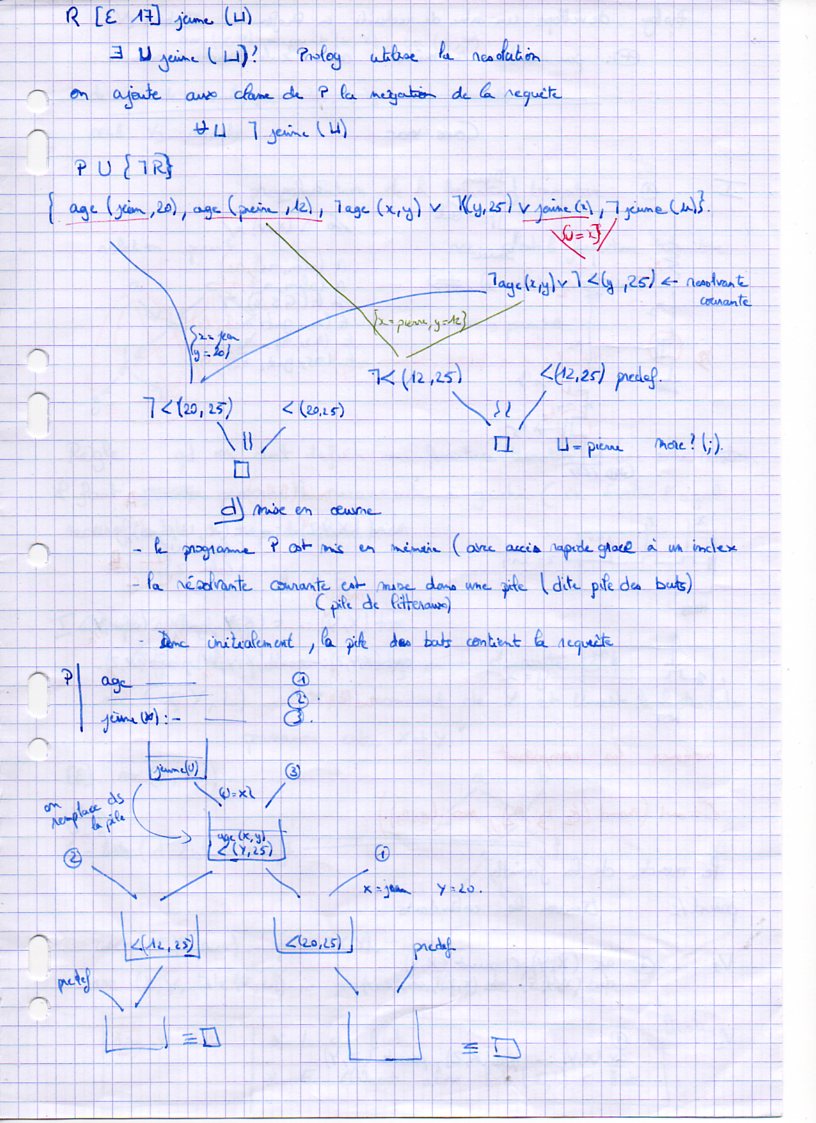 R [E 17] jeune (U)
∃ U jeune (U)? Prolog utilise la resolution
on ajoute aux clause de P la negation de la requête
∀U ¬ jeune (U)
P U {¬R}
{ age (jean, 20), age (pierre, 12), ¬age (x,y) ∨ ¬<(y,25) ∨ jeune (x), ¬jeune (u)}.
{U=x}
¬age(x,y) ∨ ¬<(y,25) ← resolvante
courante
{x=jean
y=20}
{x=pierre, y=12}
¬<(12,25) <(12,25) predef.
¬<(20,25) <(20,25)
{}
{}
□ U=pierre more? (;).
□
d) mise en œuvre
- le programme P est mis en mémoire (avec accès rapide grace à un index
- la résolvante courante est mise dans une pile (dite pile des buts)
(pile de litteraux)
- Donc initialement, la pile des buts contient la requête
P age ①
②
jeune(x) :- ③.
jeune(U) ③
{U=x}
on
remplace ds
la pile
age(x,y)
<(Y,25)
② ①
x=jean Y=20.
<(12,25) <(20,25) predef
predef
≡ □ ≡ □